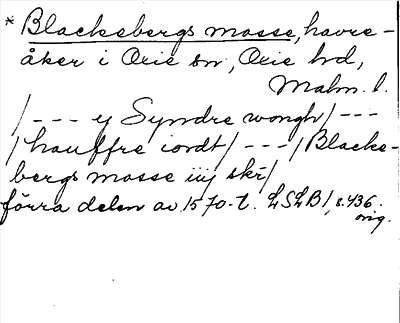 * Blacksebergs mosse, havre-
åker i Oxie sn, Oxie hd,
Malm. l.
/--- y Syndre wongh/---
/hauffre iordt/---/Blackse-
bergs mosse iiij skr/
förra delen av 1570-t. LSLB1, s. 436.
orig.